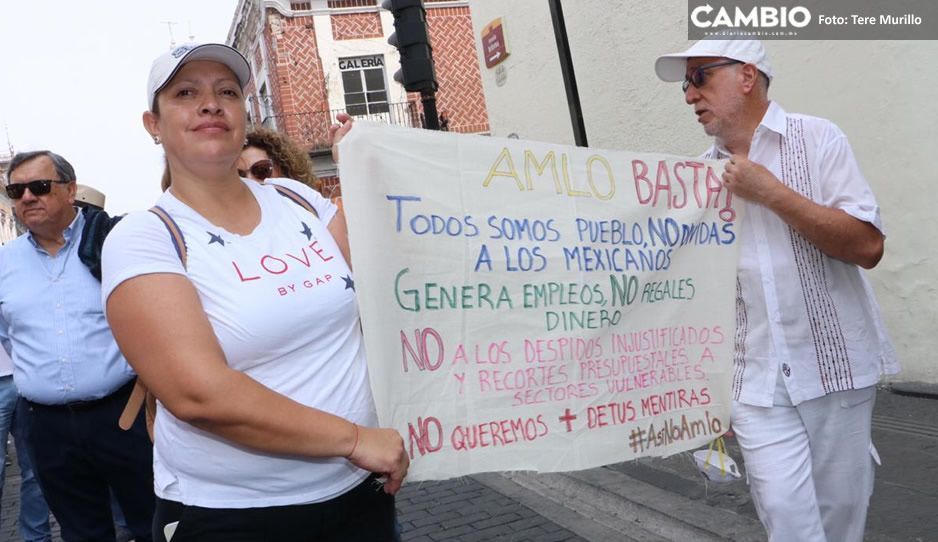 CAMBIO
www.diariocambio.com.mx
Foto: Tere Murillo
GALERÍA
AMLO BASTA!
TODOS SOMOS PUEBLO, NO DIVIDAS
A LOS MEXICANOS
GENERA EMPLEOS, NO REGALES
DINERO
NO A LOS DESPIDOS INJUSTIFICADOS
Y RECORTES PRESUPUESTALES A
SECTORES VULNERABLES.
NO QUEREMOS + DE TUS MENTIRAS
#AsiNoAmlo
LOVE
BY GAP